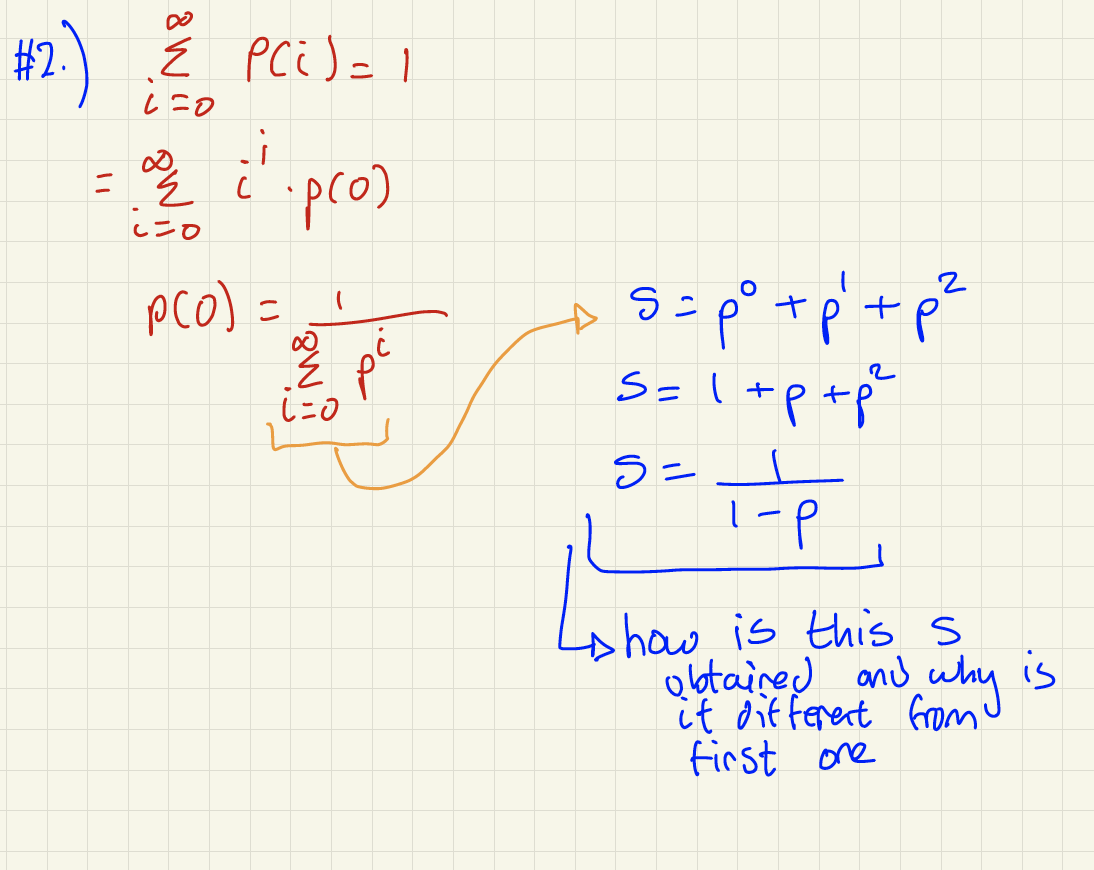 #2.) ∞∑i=0 P(i) = 1
= ∞∑i=0 i^i · p(0)
p(0) = 1 / ∞∑i=0 p^i
S = p^0 + p^1 + p^2
S = 1 + p + p^2
S = 1 / 1 - p
how is this S
obtained and why is
it different from
first one